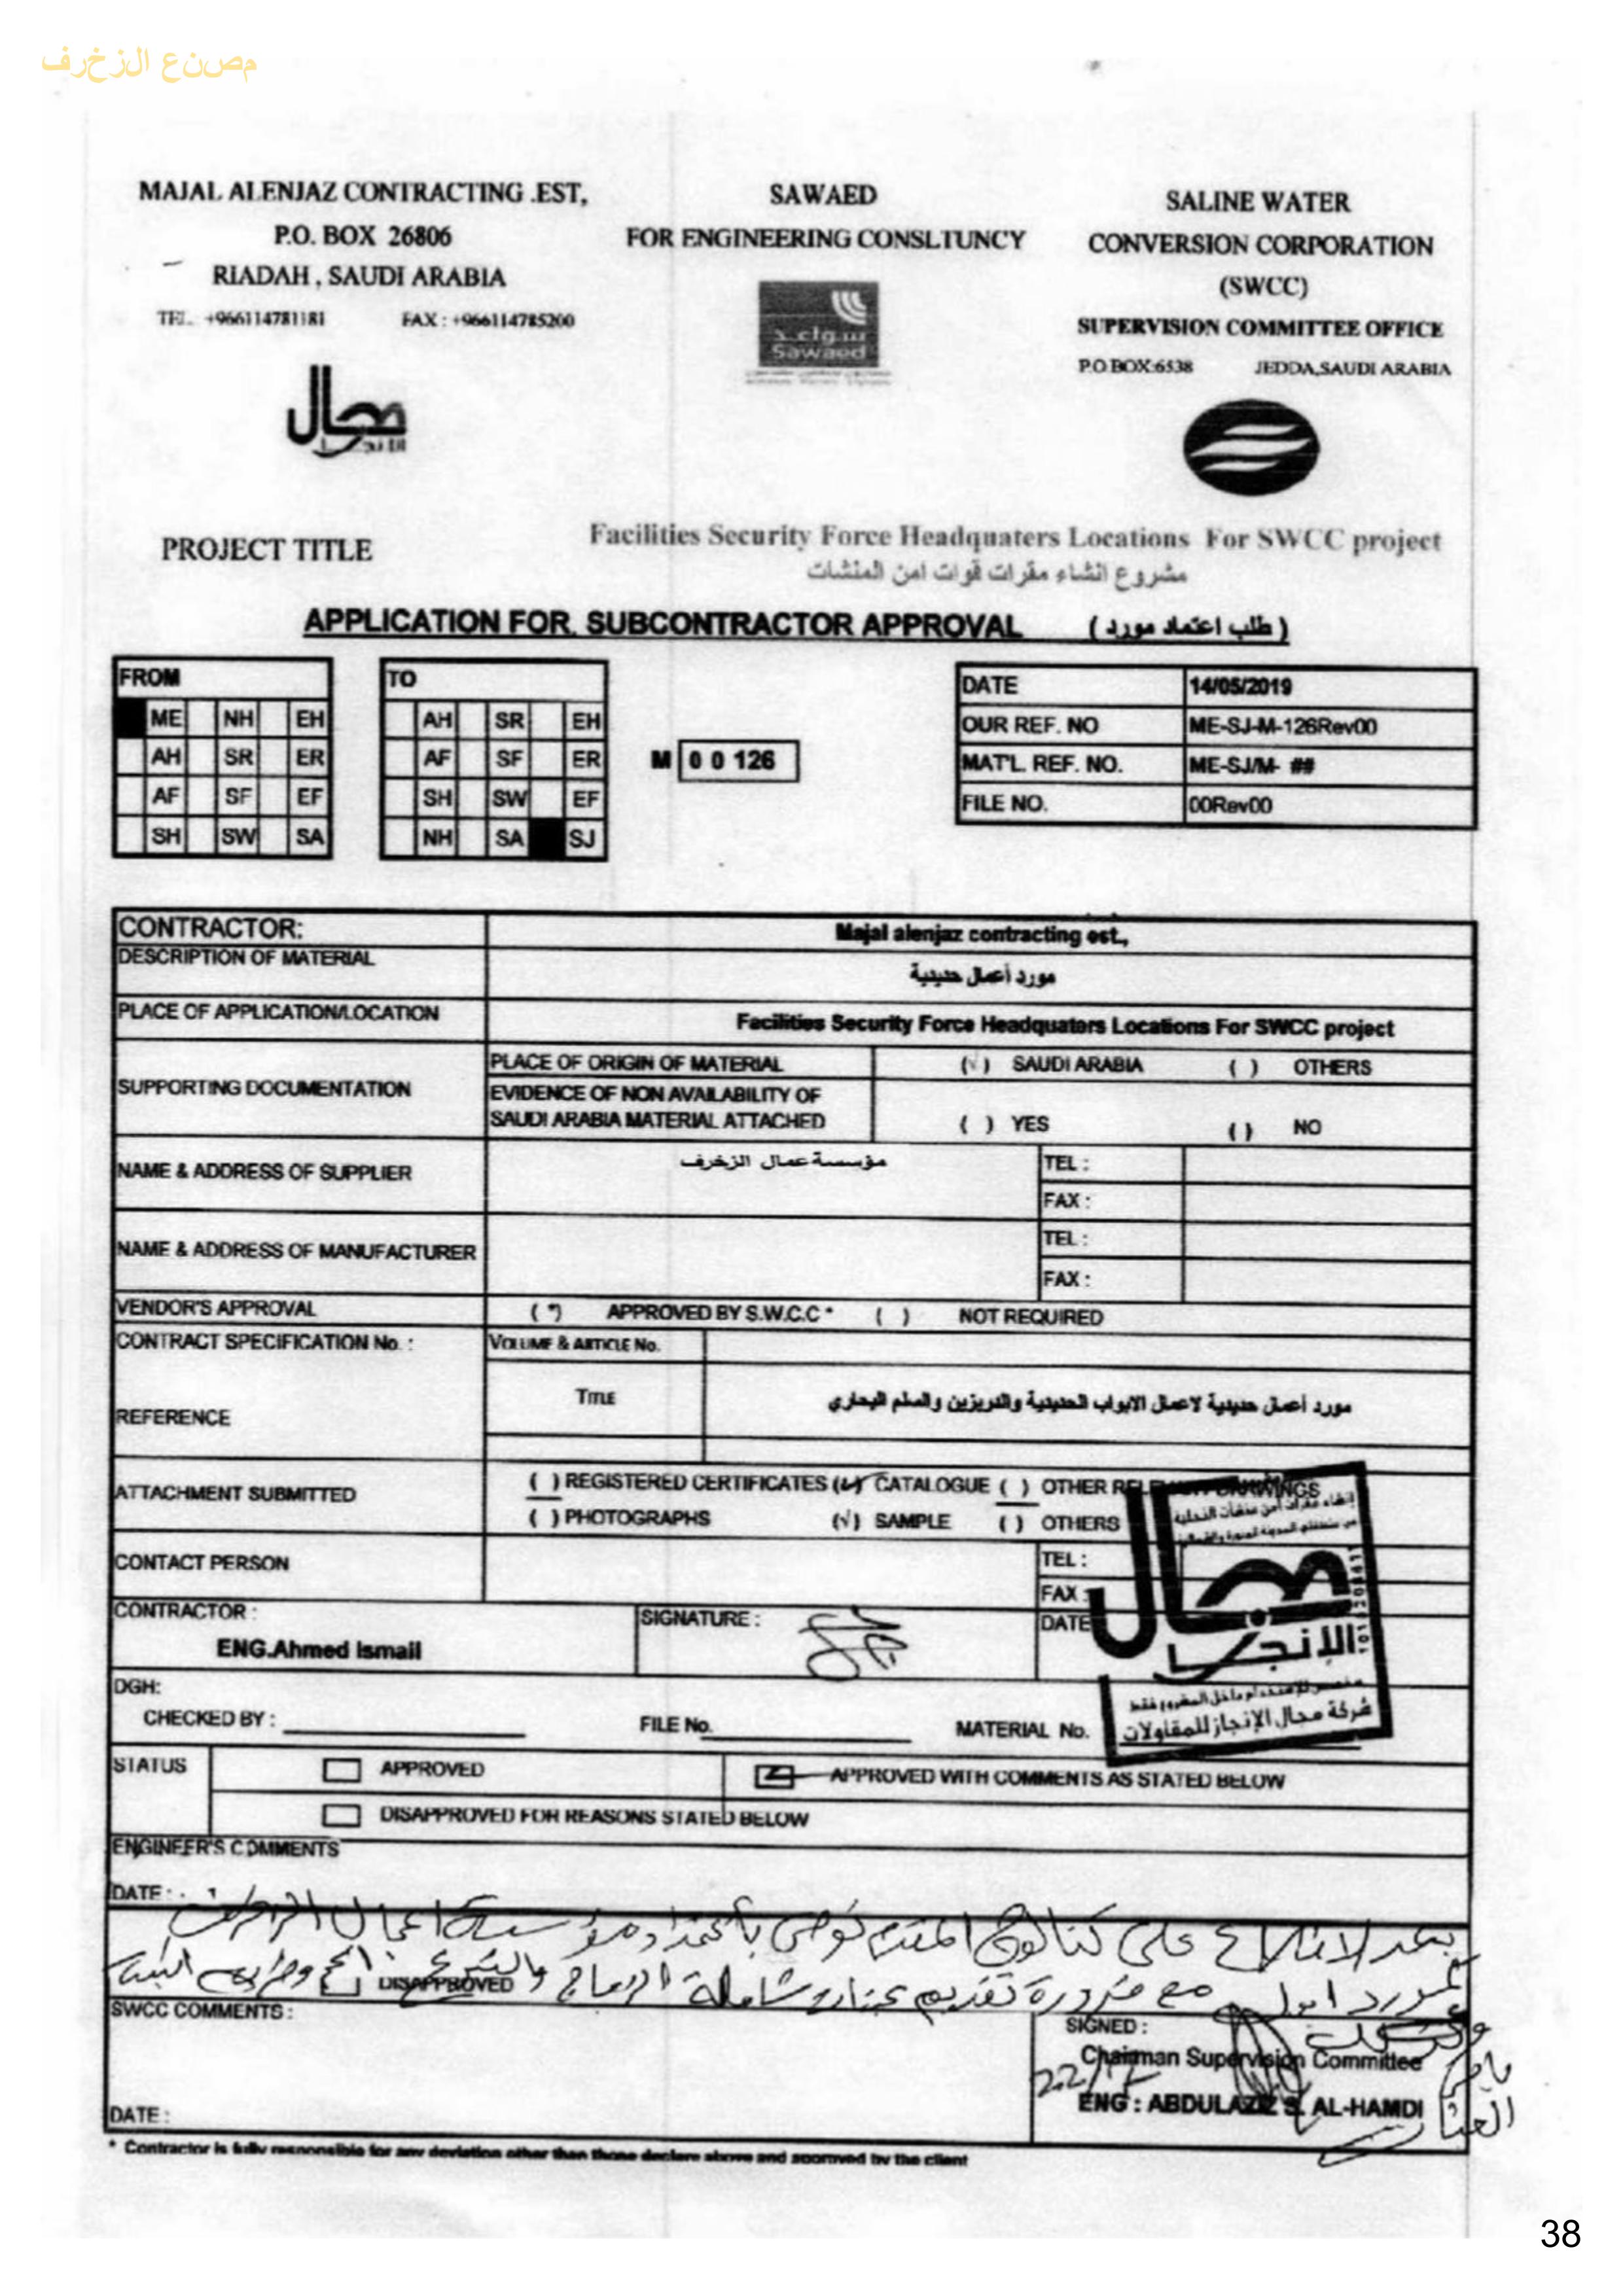 مصنع الزخرف
MAJAL ALENJAZ CONTRACTING .EST,
P.O. BOX 26806
RIADAH , SAUDI ARABIA
TEL. +966114781181 FAX : +966114785200
مجال
الإنجاز
SAWAED
FOR ENGINEERING CONSLTUNCY
سواعد
Sawaed
SALINE WATER
CONVERSION CORPORATION
(SWCC)
SUPERVISION COMMITTEE OFFICE
P.O BOX:6538 JEDDA,SAUDI ARABIA
PROJECT TITLE
Facilities Security Force Headquaters Locations For SWCC project
مشروع انشاء مقرات قوات امن المنشات
APPLICATION FOR. SUBCONTRACTOR APPROVAL ( طلب اعتماد مورد )
FROM
ME NH EH
AH SR ER
AF SF EF
SH SW SA
TO
AH SR EH
AF SF ER
SH SW EF
NH SA SJ
M 0 0 126
DATE 14/05/2019
OUR REF. NO ME-SJ-M-126Rev00
MAT'L REF. NO. ME-SJ/M- ##
FILE NO. 00Rev00
CONTRACTOR: Majal alenjaz contracting est.,
DESCRIPTION OF MATERIAL مورد أعمال حديدية
PLACE OF APPLICATION/LOCATION Facilities Security Force Headquaters Locations For SWCC project
SUPPORTING DOCUMENTATION
PLACE OF ORIGIN OF MATERIAL (√) SAUDI ARABIA ( ) OTHERS
EVIDENCE OF NON AVAILABILITY OF
SAUDI ARABIA MATERIAL ATTACHED ( ) YES ( ) NO
NAME & ADDRESS OF SUPPLIER مؤسسة عمال الزخرف TEL :
FAX :
NAME & ADDRESS OF MANUFACTURER TEL :
FAX :
VENDOR'S APPROVAL ( *) APPROVED BY S.W.C.C * ( ) NOT REQUIRED
CONTRACT SPECIFICATION No. : VOLUME & ARTICLE No.
REFERENCE TITLE مورد أعمال حديدية لاعمال الابواب الحديدية والدربزين والسلم البحاري
ATTACHMENT SUBMITTED
( ) REGISTERED CERTIFICATES (√) CATALOGUE ( ) OTHER RELEVANT DRAWINGS
( ) PHOTOGRAPHS (√) SAMPLE ( ) OTHERS
CONTACT PERSON TEL :
FAX :
CONTRACTOR : SIGNATURE : DATE
ENG.Ahmed Ismail
إنشاء مقرات أمن منشآت التحلية
مجال
الإنجاز
شركة مجال الإنجاز للمقاولات
DGH:
CHECKED BY : FILE No. MATERIAL No.
STATUS APPROVED APPROVED WITH COMMENTS AS STATED BELOW
DISAPPROVED FOR REASONS STATED BELOW
ENGINEER'S COMMENTS
DATE :
بعد الاطلاع على كتالوج المقدم نوصى باعتماد مؤسسة اعمال الزخرف
مع ضرورة تقديم عينات شاملة
DISAPPROVED
SWCC COMMENTS :
SIGNED :
Chairman Supervision Committee
ENG : ABDULAZIZ S. AL-HAMDI
DATE :
* Contractor is fully responsible for any deviation other than those declare above and approved by the client
38